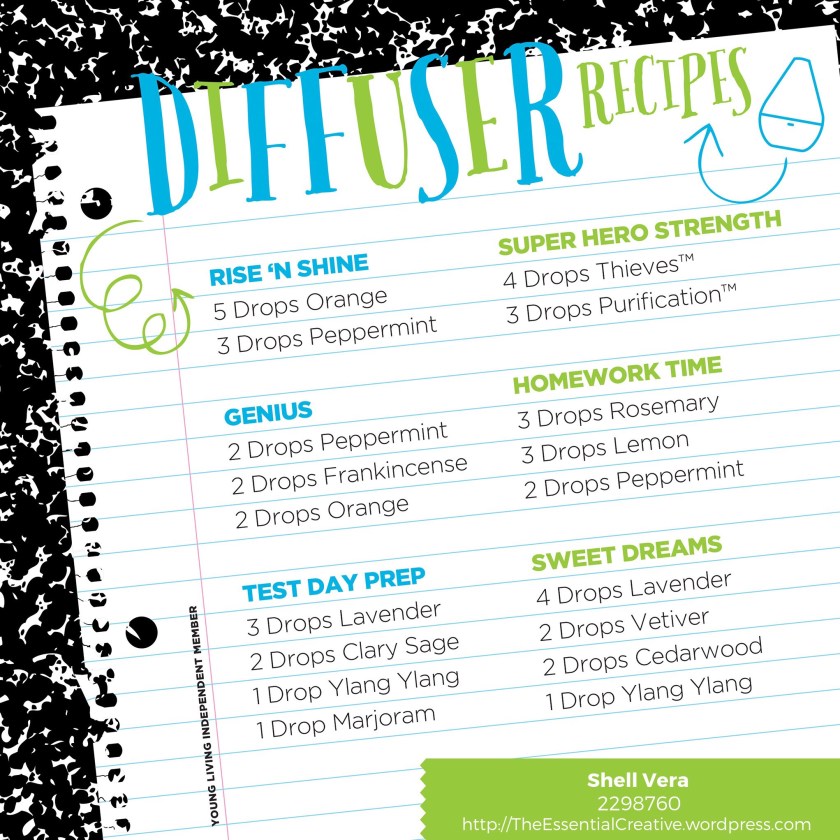 DIFFUSER RECIPES
RISE ‘N SHINE
5 Drops Orange
3 Drops Peppermint
GENIUS
2 Drops Peppermint
2 Drops Frankincense
2 Drops Orange
TEST DAY PREP
3 Drops Lavender
2 Drops Clary Sage
1 Drop Ylang Ylang
1 Drop Marjoram
SUPER HERO STRENGTH
4 Drops Thieves™
3 Drops Purification™
HOMEWORK TIME
3 Drops Rosemary
3 Drops Lemon
2 Drops Peppermint
SWEET DREAMS
4 Drops Lavender
2 Drops Vetiver
2 Drops Cedarwood
1 Drop Ylang Ylang
YOUNG LIVING INDEPENDENT MEMBER
Shell Vera
2298760
http://TheEssentialCreative.wordpress.com